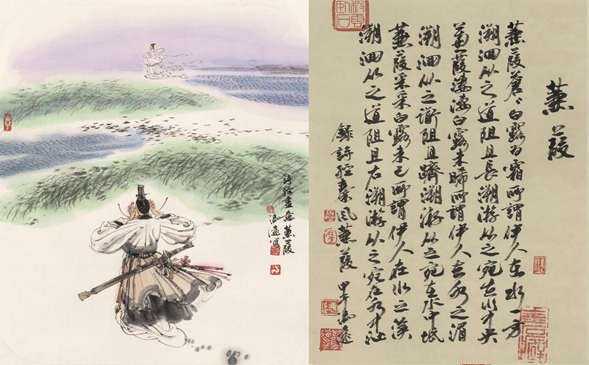 蒹葭
蒹葭蒼々白露为霜所謂伊人在水一方
溯洄从之道阻且長溯游从之宛在水中央
蒹葭凄凄白露未晞所謂伊人在水之湄
溯洄从之道阻且躋溯游从之宛在水中坻
蒹葭采采白露未已所謂伊人在水之涘
溯洄从之道阻且右溯游从之宛在水中沚
錄詩經秦风蒹葭 甲午冯远
诗经画意蒹葭
冯远写